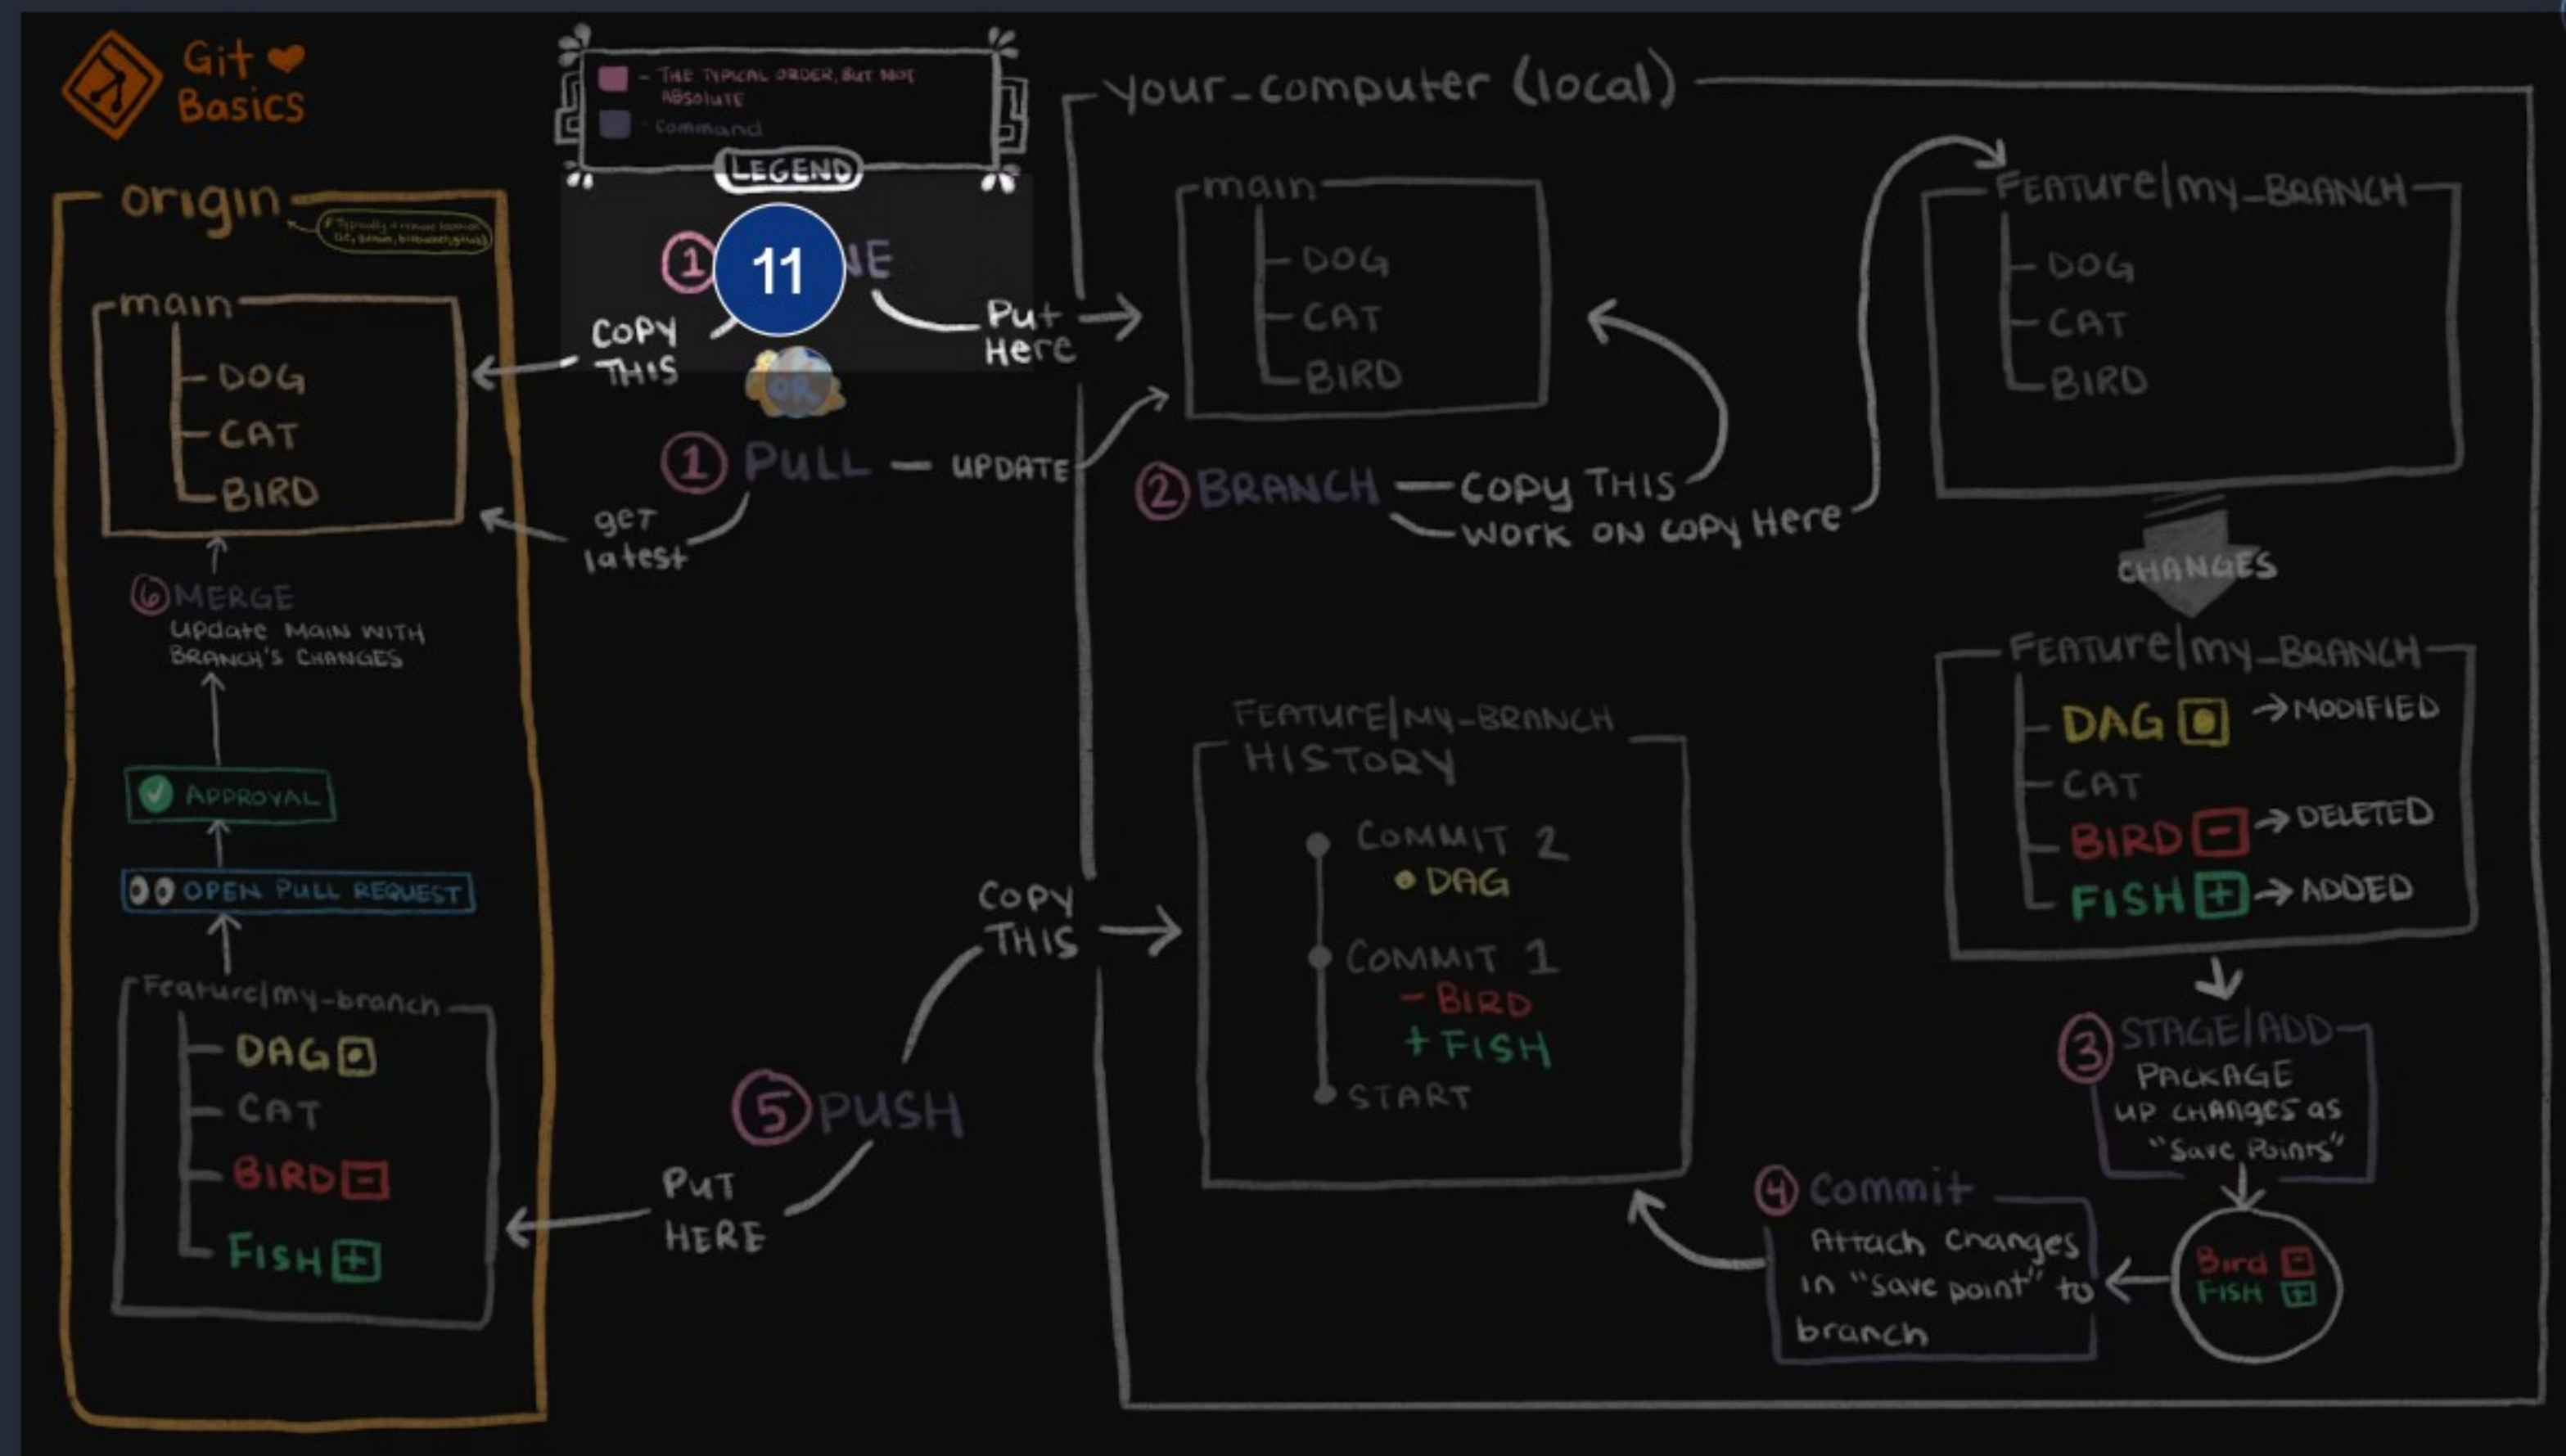 Git ❤
Basics
- THE TYPICAL ORDER, BUT NOT
ABSOLUTE
- Command
LEGEND
origin
* Typically a remote location
main
DOG
CAT
BIRD
1
11
NE
COPY
THIS
Put
Here
OR
1 PULL — UPDATE
get
latest
6 MERGE
update MAIN WITH
BRANCH'S CHANGES
APPROVAL
OPEN PULL REQUEST
Feature/my-branch
DAG
CAT
BIRD -
FISH +
5 PUSH
COPY
THIS
PUT
HERE
your_computer (local)
main
DOG
CAT
BIRD
2 BRANCH — COPY THIS
WORK ON COPY Here
FEATURE/my_BRANCH
DOG
CAT
BIRD
CHANGES
FEATURE/my_BRANCH
DAG → MODIFIED
CAT
BIRD - → DELETED
FISH + → ADDED
3 STAGE/ADD
PACKAGE
UP CHANGES as
"Save Points"
Bird -
FISH +
4 Commit
Attach Changes
in "save point" to
branch
FEATURE/MY-BRANCH
HISTORY
COMMIT 2
• DAG
COMMIT 1
- BIRD
+ FISH
START